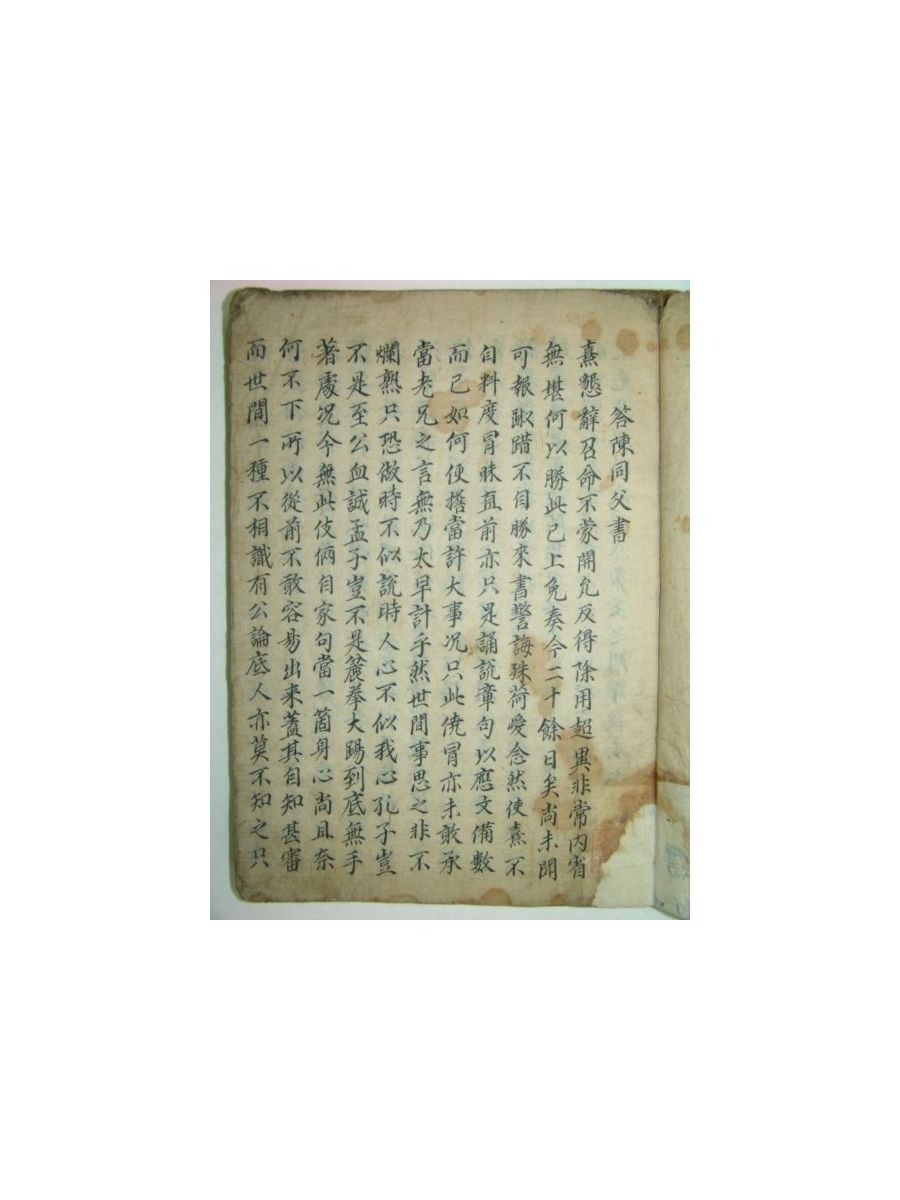 答陳同父書
熹懇辭召命不蒙開允反得除用超異非常內省
無堪何以勝此已上免奏今二十餘日矣尚未聞
可報踧踖不自勝來書警誨殊荷愛念然使熹不
自料度冒昧直前亦只是誦說章句以應文備數
而已如何便擔當許大事况只此僥冒亦未敢承
當老兄之言無乃太早計乎然世間事思之非不
爛熟只恐做時不似說時人心不似我心孔子豈
不是至公血誠孟子豈不是麄拳大踢到底無手
著處况今無此伎倆自家句當一箇身心尚且奈
何不下所以從前不敢容易出来蓋其自知甚審
而世間一種不相識有公論底人亦莫不知之只